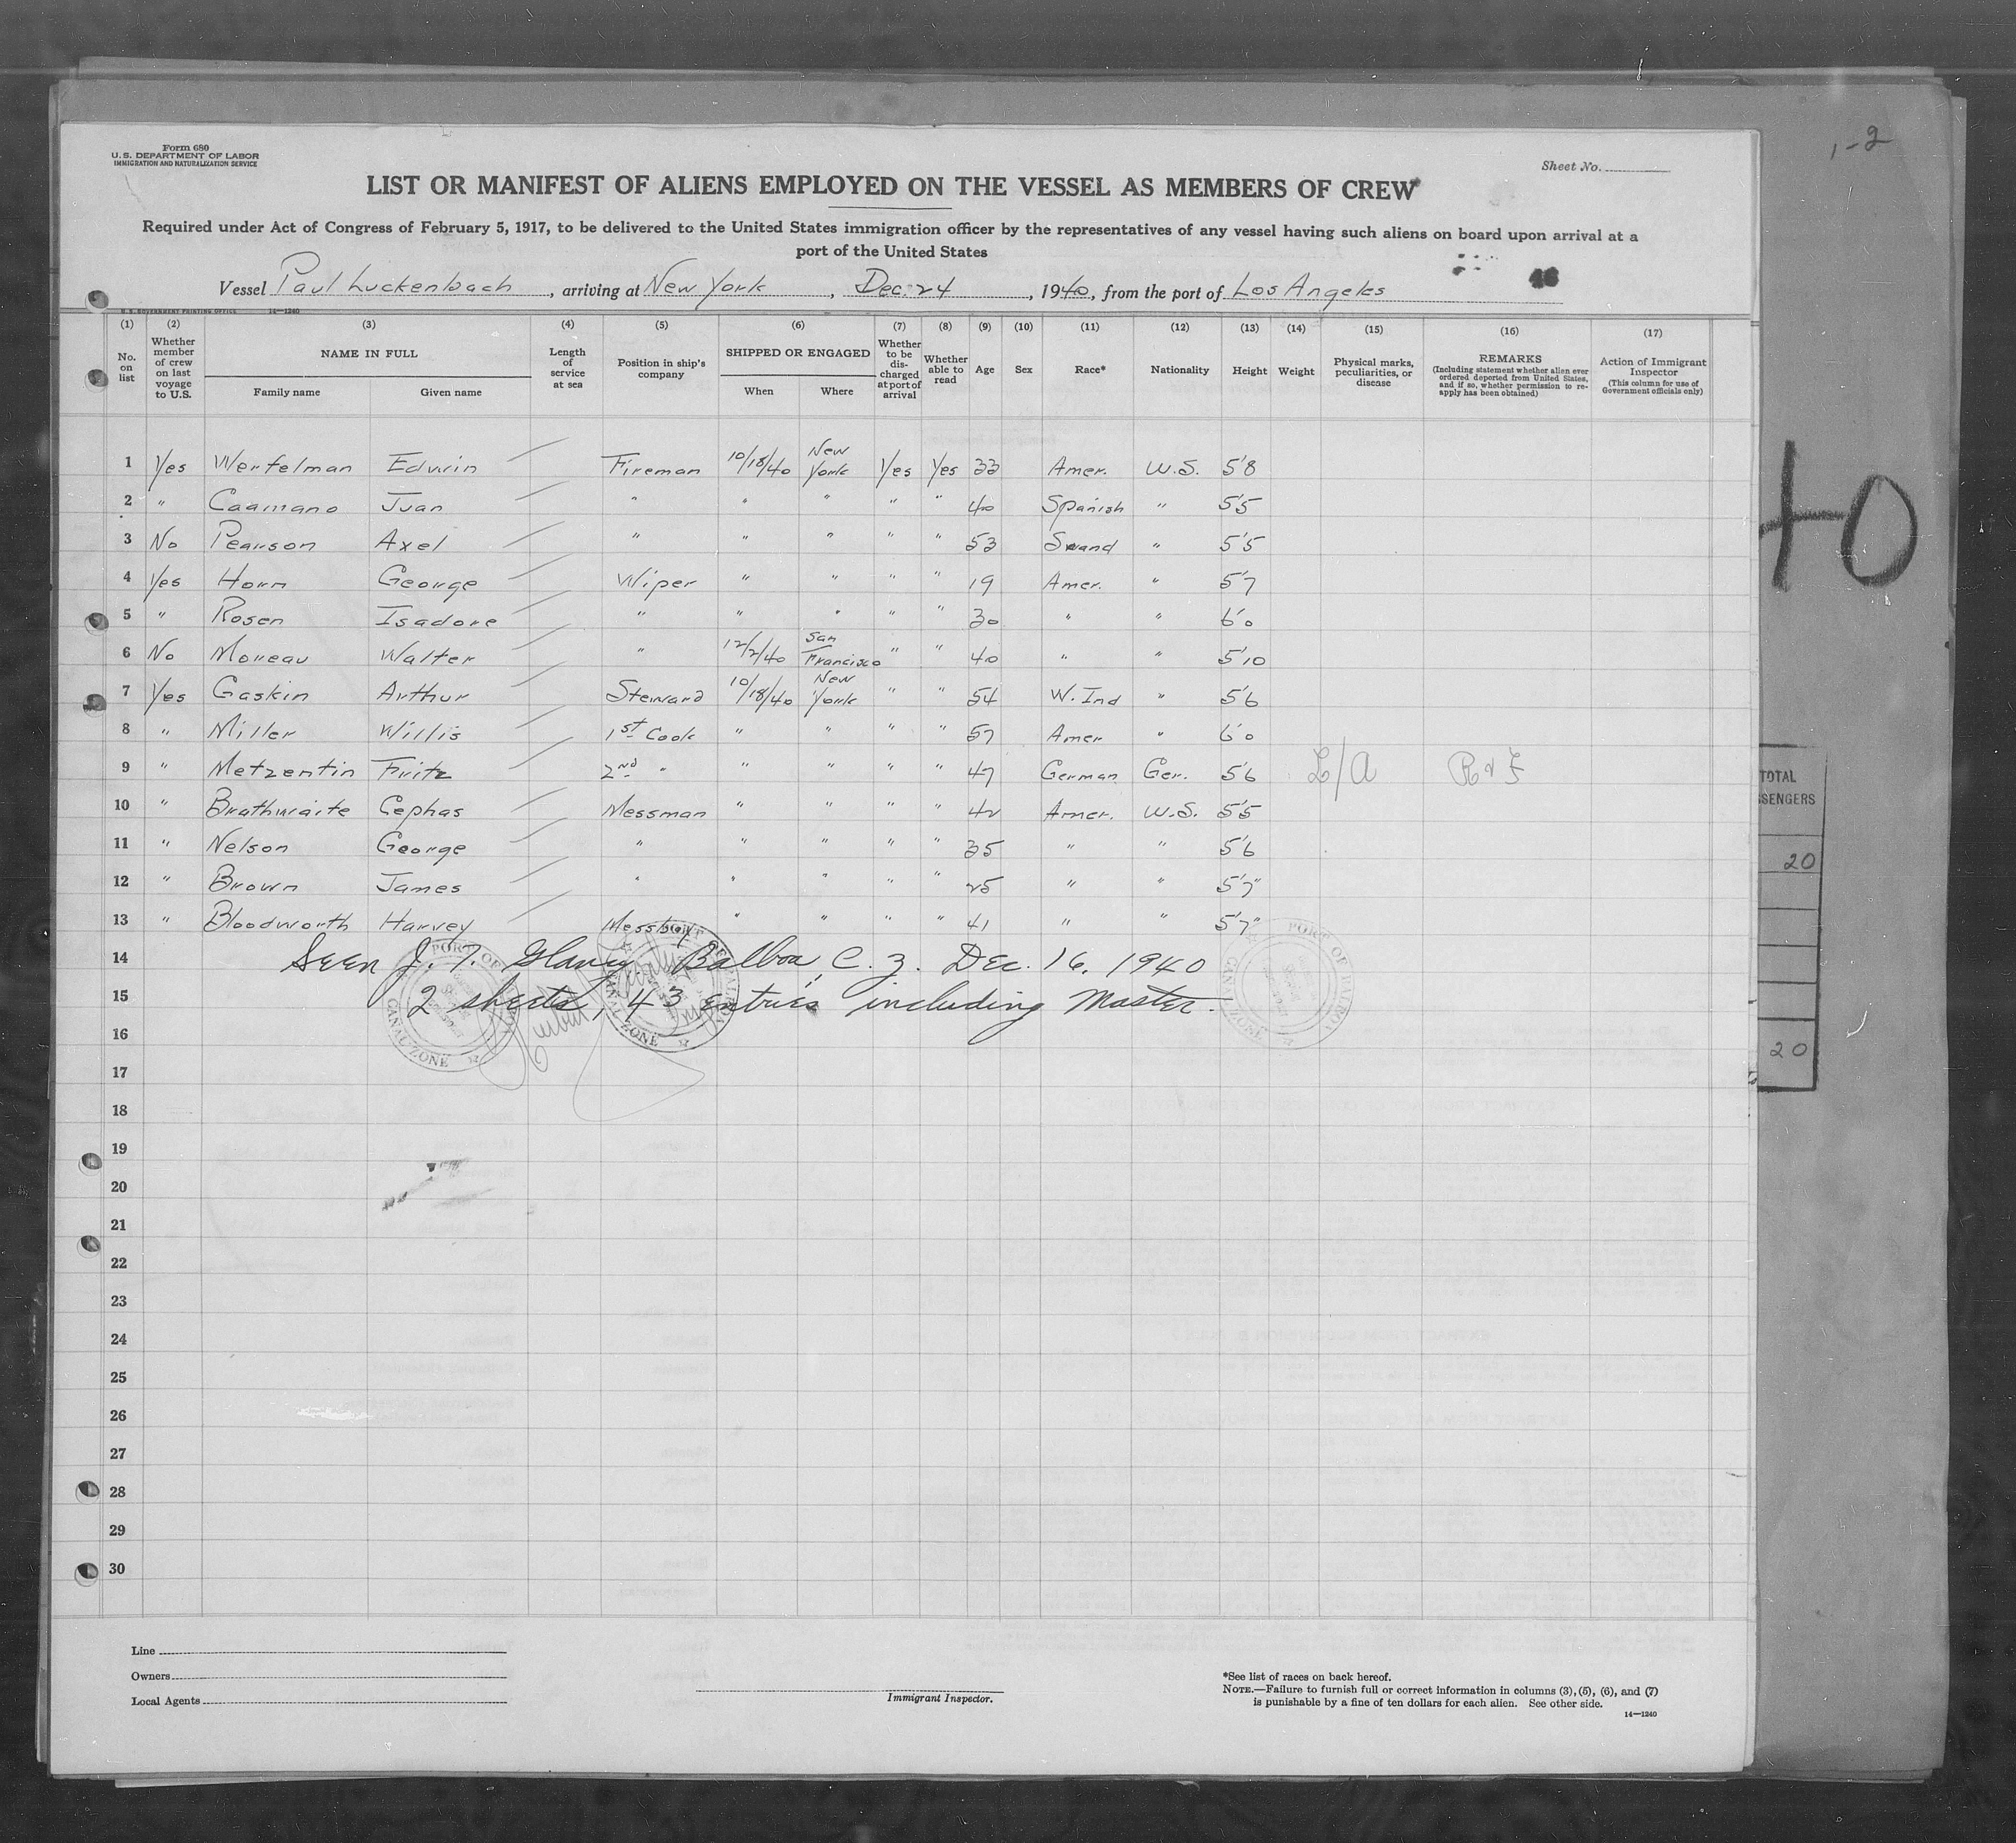 1-2
Form 680
U.S. DEPARTMENT OF LABOR
IMMIGRATION AND NATURALIZATION SERVICE
Sheet No.
LIST OR MANIFEST OF ALIENS EMPLOYED ON THE VESSEL AS MEMBERS OF CREW
Required under Act of Congress of February 5, 1917, to be delivered to the United States immigration officer by the representatives of any vessel having such aliens on board upon arrival at a
port of the United States
Vessel Paul Luckenbach, arriving at New York, Dec. 24, 1940, from the port of Los Angeles
U.S. GOVERNMENT PRINTING OFFICE 14—1240
(1) (2) (3) (4) (5) (6) (7) (8) (9) (10) (11) (12) (13) (14) (15) (16) (17)
No. on list
Whether member of crew on last voyage to U.S.
NAME IN FULL
Family name Given name
Length of service at sea
Position in ship's company
SHIPPED OR ENGAGED
When Where
Whether to be discharged at port of arrival
Whether able to read
Age Sex Race* Nationality Height Weight
Physical marks, peculiarities, or disease
REMARKS
(Including statement whether alien ever ordered deported from United States, and if so, whether permission to re-apply has been obtained)
Action of Immigrant Inspector
(This column for use of Government officials only)
1 Yes Werfelman Edwin Fireman 10/18/40 New York Yes Yes 33 Amer. U.S. 5'8
2 " Caamano Juan " " " " " 40 Spanish " 5'5
3 No Pearson Axel " " " " " 53 Scand " 5'5
4 Yes Horn George Wiper " " " " 19 Amer. " 5'7
5 " Rosen Isadore " " " " " 30 " " 6'0
6 No Moreau Walter " 12/2/40 San Francisco " " 40 " " 5'10
7 Yes Gaskin Arthur Steward 10/18/40 New York " " 54 W. Ind " 5'6
8 " Miller Willis 1st Cook " " " " 57 Amer " 6'0
9 " Metzentin Fritz 2nd " " " " " 47 German Ger. 5'6 L/A R & F
10 " Brathwaite Cephas Messman " " " " 42 Amer. U.S. 5'5
11 " Nelson George " " " " " 35 " " 5'6
12 " Brown James " " " " " 25 " " 5'7"
13 " Bloodworth Harvey Messboy " " " " 41 " " 5'7"
14 Seen J. T. Glancy Balboa, C. Z. Dec. 16, 1940
15 2 sheets, 43 entries including Master.
PORT OF BALBOA
CANAL ZONE
PORT OF BALBOA
CANAL ZONE
PORT OF BALBOA
CANAL ZONE
16
17
18
19
20
21
22
23
24
25
26
27
28
29
30
Line
Owners
Local Agents
Immigrant Inspector.
*See list of races on back hereof.
NOTE.—Failure to furnish full or correct information in columns (3), (5), (6), and (7)
is punishable by a fine of ten dollars for each alien. See other side.
14—1240
40
TOTAL
SSENGERS
20
20